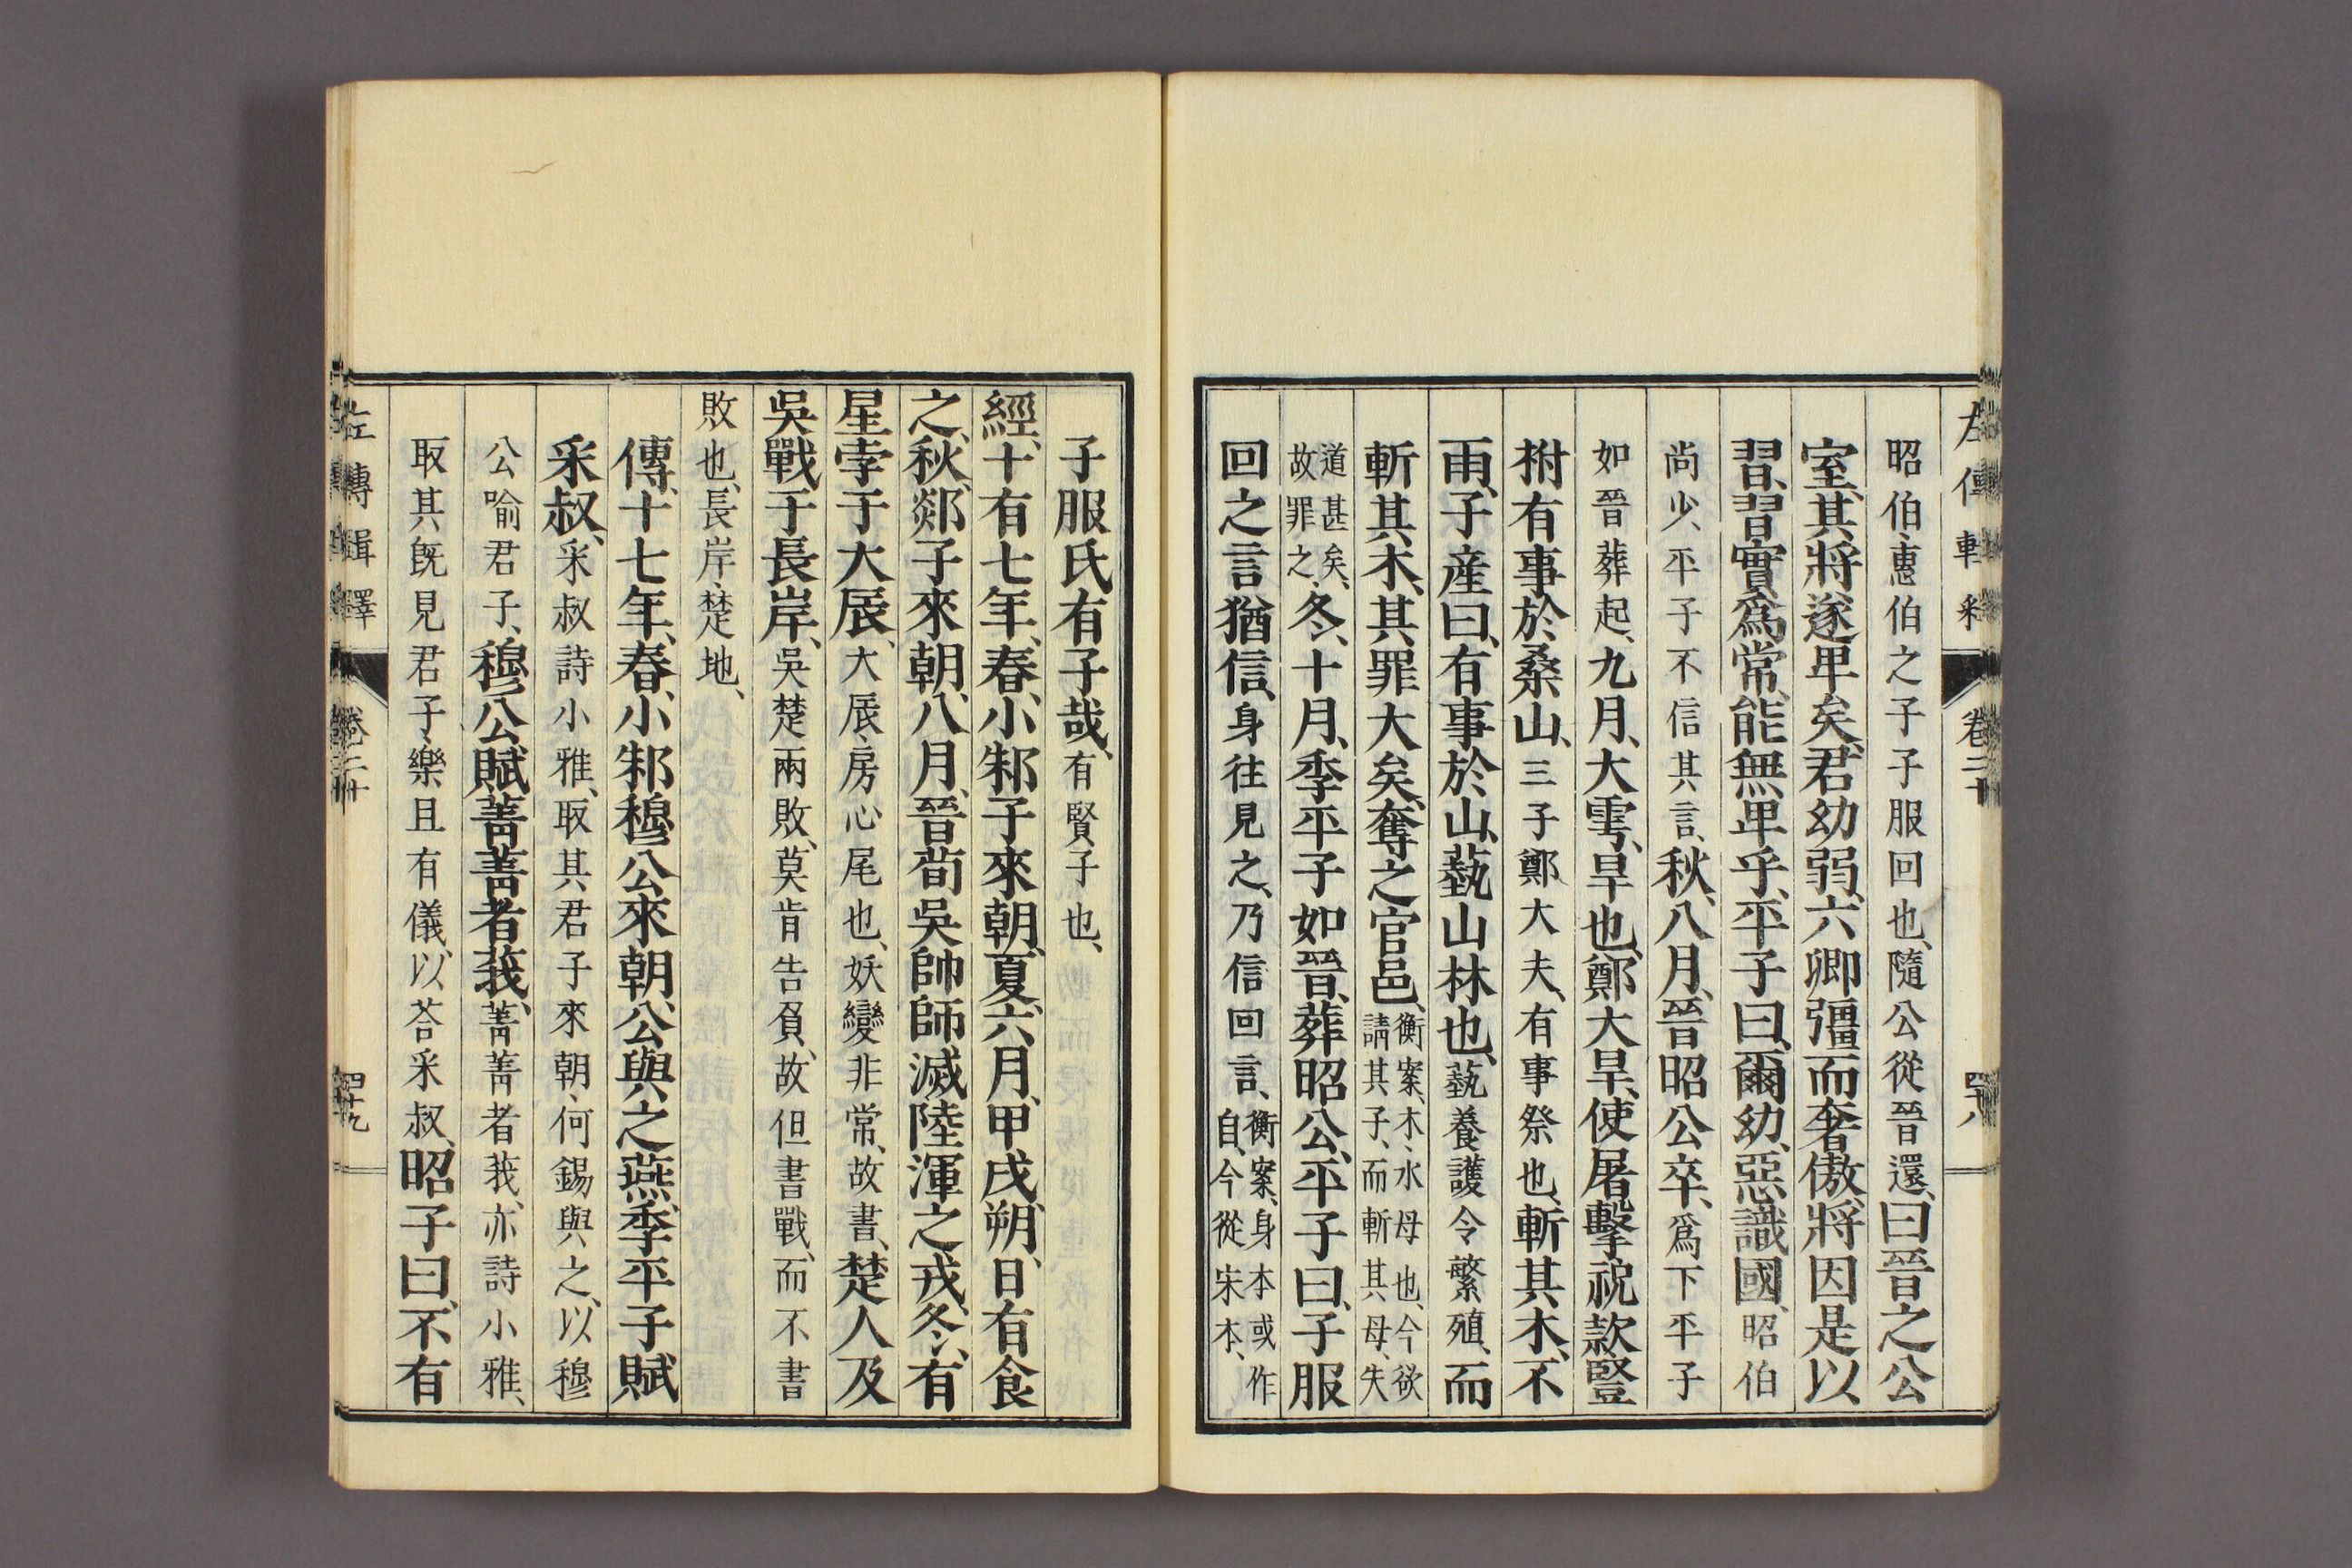 左傳輯釋 卷二十 四十八
昭伯、惠伯之子子服回也、隨公從晉還、曰晉之公
室、其將遂卑矣、君幼弱、六卿彊而奢傲、將因是以
習、習實爲常、能無卑乎、平子曰、爾幼、惡識國、昭伯
尚少、平子不信其言、秋、八月、晉昭公卒、爲下平子
如晉葬起、九月、大雩、旱也、鄭大旱、使屠擊祝款豎
柎有事於桑山、三子鄭大夫、有事祭也、斬其木、不
雨、子產曰、有事於山、蓺山林也、蓺養護令繁殖、而
斬其木、其罪大矣、奪之官邑、衡案、木、水母也、今欲請其子、而斬其母、失
道甚矣、故罪之、冬、十月、季平子如晉、葬昭公、平子曰、子服
回之言猶信、身往見之、乃信回言、衡案、身本或作自、今從宋本、
子服氏有子哉、有賢子也、
經、十有七年、春、小邾子來朝、夏、六月、甲戌、朔、日有食
之、秋、郯子來朝、八月、晉荀吳帥師滅陸渾之戎、冬、有
星孛于大辰、大辰、房心尾也、妖變非常、故書、楚人及
吳戰于長岸、吳楚兩敗、莫肯告負、故但書戰、而不書
敗也、長岸、楚地、
傳、十七年、春、小邾穆公來朝、公與之燕、季平子賦
采叔、采叔詩小雅、取其君子來朝、何錫與之、以穆
公喻君子、穆公賦菁菁者莪、菁菁者莪、亦詩小雅、
取其旣見君子、樂且有儀、以荅采叔、昭子曰、不有
左傳輯釋 卷二十 四十九